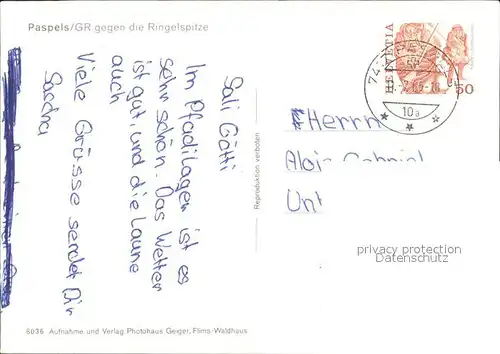 Paspels/GR gegen die Ringelspitze
Sali Götti
Im Pfadilager ist es
sehr schön. Das Wetter
ist gut, und die Laune
auch
Viele Grüsse sendet Dir
Sandra
Reproduktion verboten
HELVETIA
50
10a
Herrn
Alois Gabriel
Unt
privacy protection
Datenschutz
6036 Aufnahme und Verlag Photohaus Geiger, Flims/Waldhaus